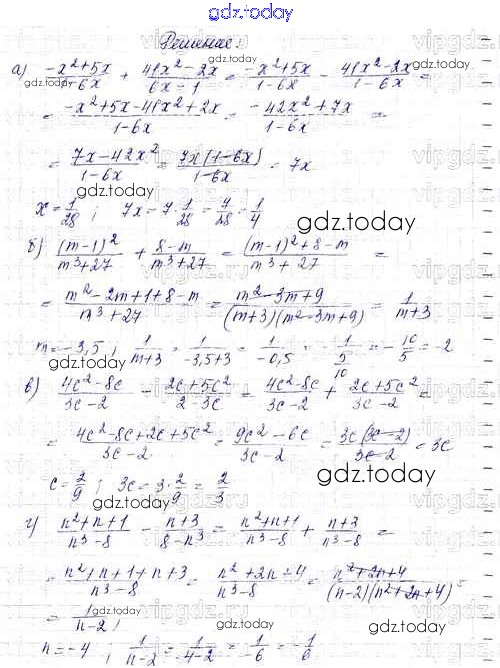 gdz.today
Решение:
а) (-x²+5x)/(1-6x) + (41x²-2x)/(6x-1) = (-x²+5x)/(1-6x) - (41x²-2x)/(1-6x) =
= (-x²+5x-41x²+2x)/(1-6x) = (-42x²+7x)/(1-6x) =
= (7x-42x²)/(1-6x) = 7x(1-6x)/(1-6x) = 7x
x = 1/28 ; 7x = 7·1/28 = 7/28 = 1/4
б) (m-1)²/(m³+27) + (8-m)/(m³+27) = ((m-1)²+8-m)/(m³+27) =
= (m²-2m+1+8-m)/(m³+27) = (m²-3m+9)/((m+3)(m²-3m+9)) = 1/(m+3)
m = -3,5 ; 1/(m+3) = 1/(-3,5+3) = 1/(-0,5) = 1/(5/10) = -10/5 = -2
в) (4c²-8c)/(3c-2) - (2c+5c²)/(2-3c) = (4c²-8c)/(3c-2) + (2c+5c²)/(3c-2) =
= (4c²-8c+2c+5c²)/(3c-2) = (9c²-6c)/(3c-2) = 3c(3c-2)/(3c-2) = 3c
c = 2/9 ; 3c = 3·2/9 = 2/3
г) (n²+n+1)/(n³-8) - (n+3)/(8-n³) = (n²+n+1)/(n³-8) + (n+3)/(n³-8) =
= (n²+n+1+n+3)/(n³-8) = (n²+2n+4)/(n³-8) = (n²+2n+4)/((n-2)(n²+2n+4)) =
= 1/(n-2) ;
n = -4 ; 1/(n-2) = 1/(-4-2) = 1/(-6) = -1/6